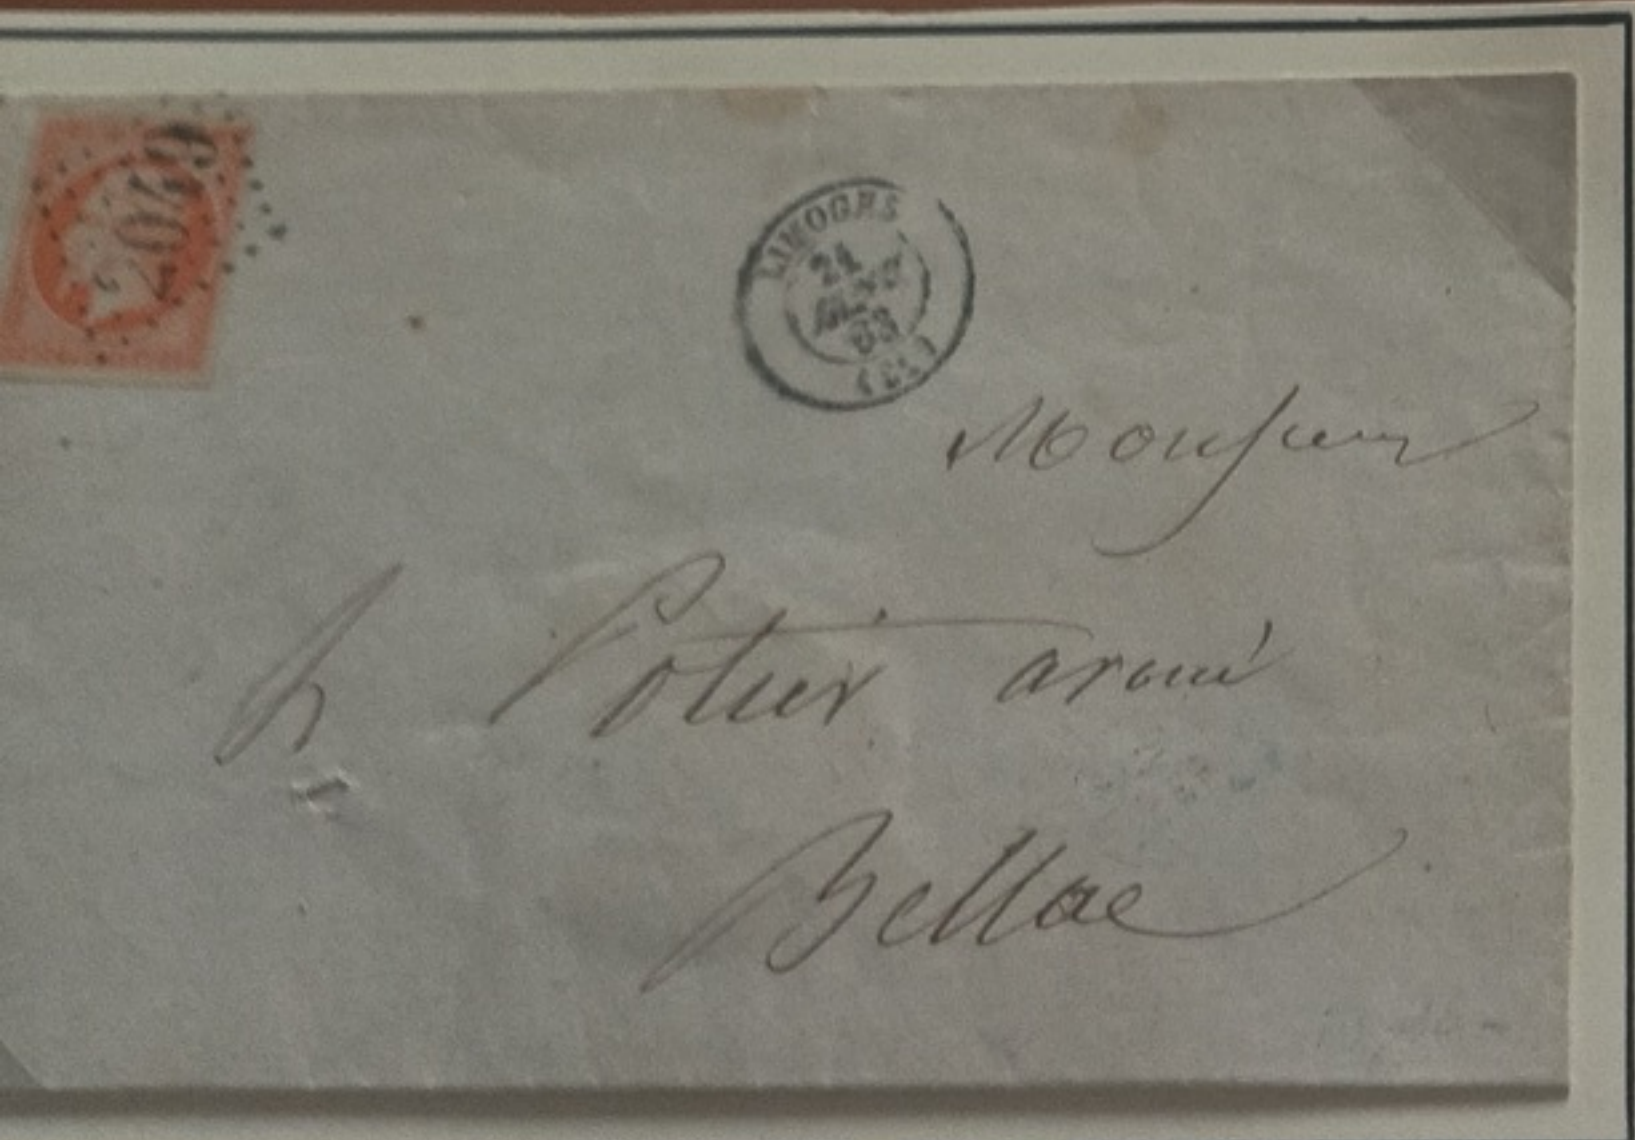 2049
LIMOGES
21
63
Monsieur
Potier avoué
Bellac